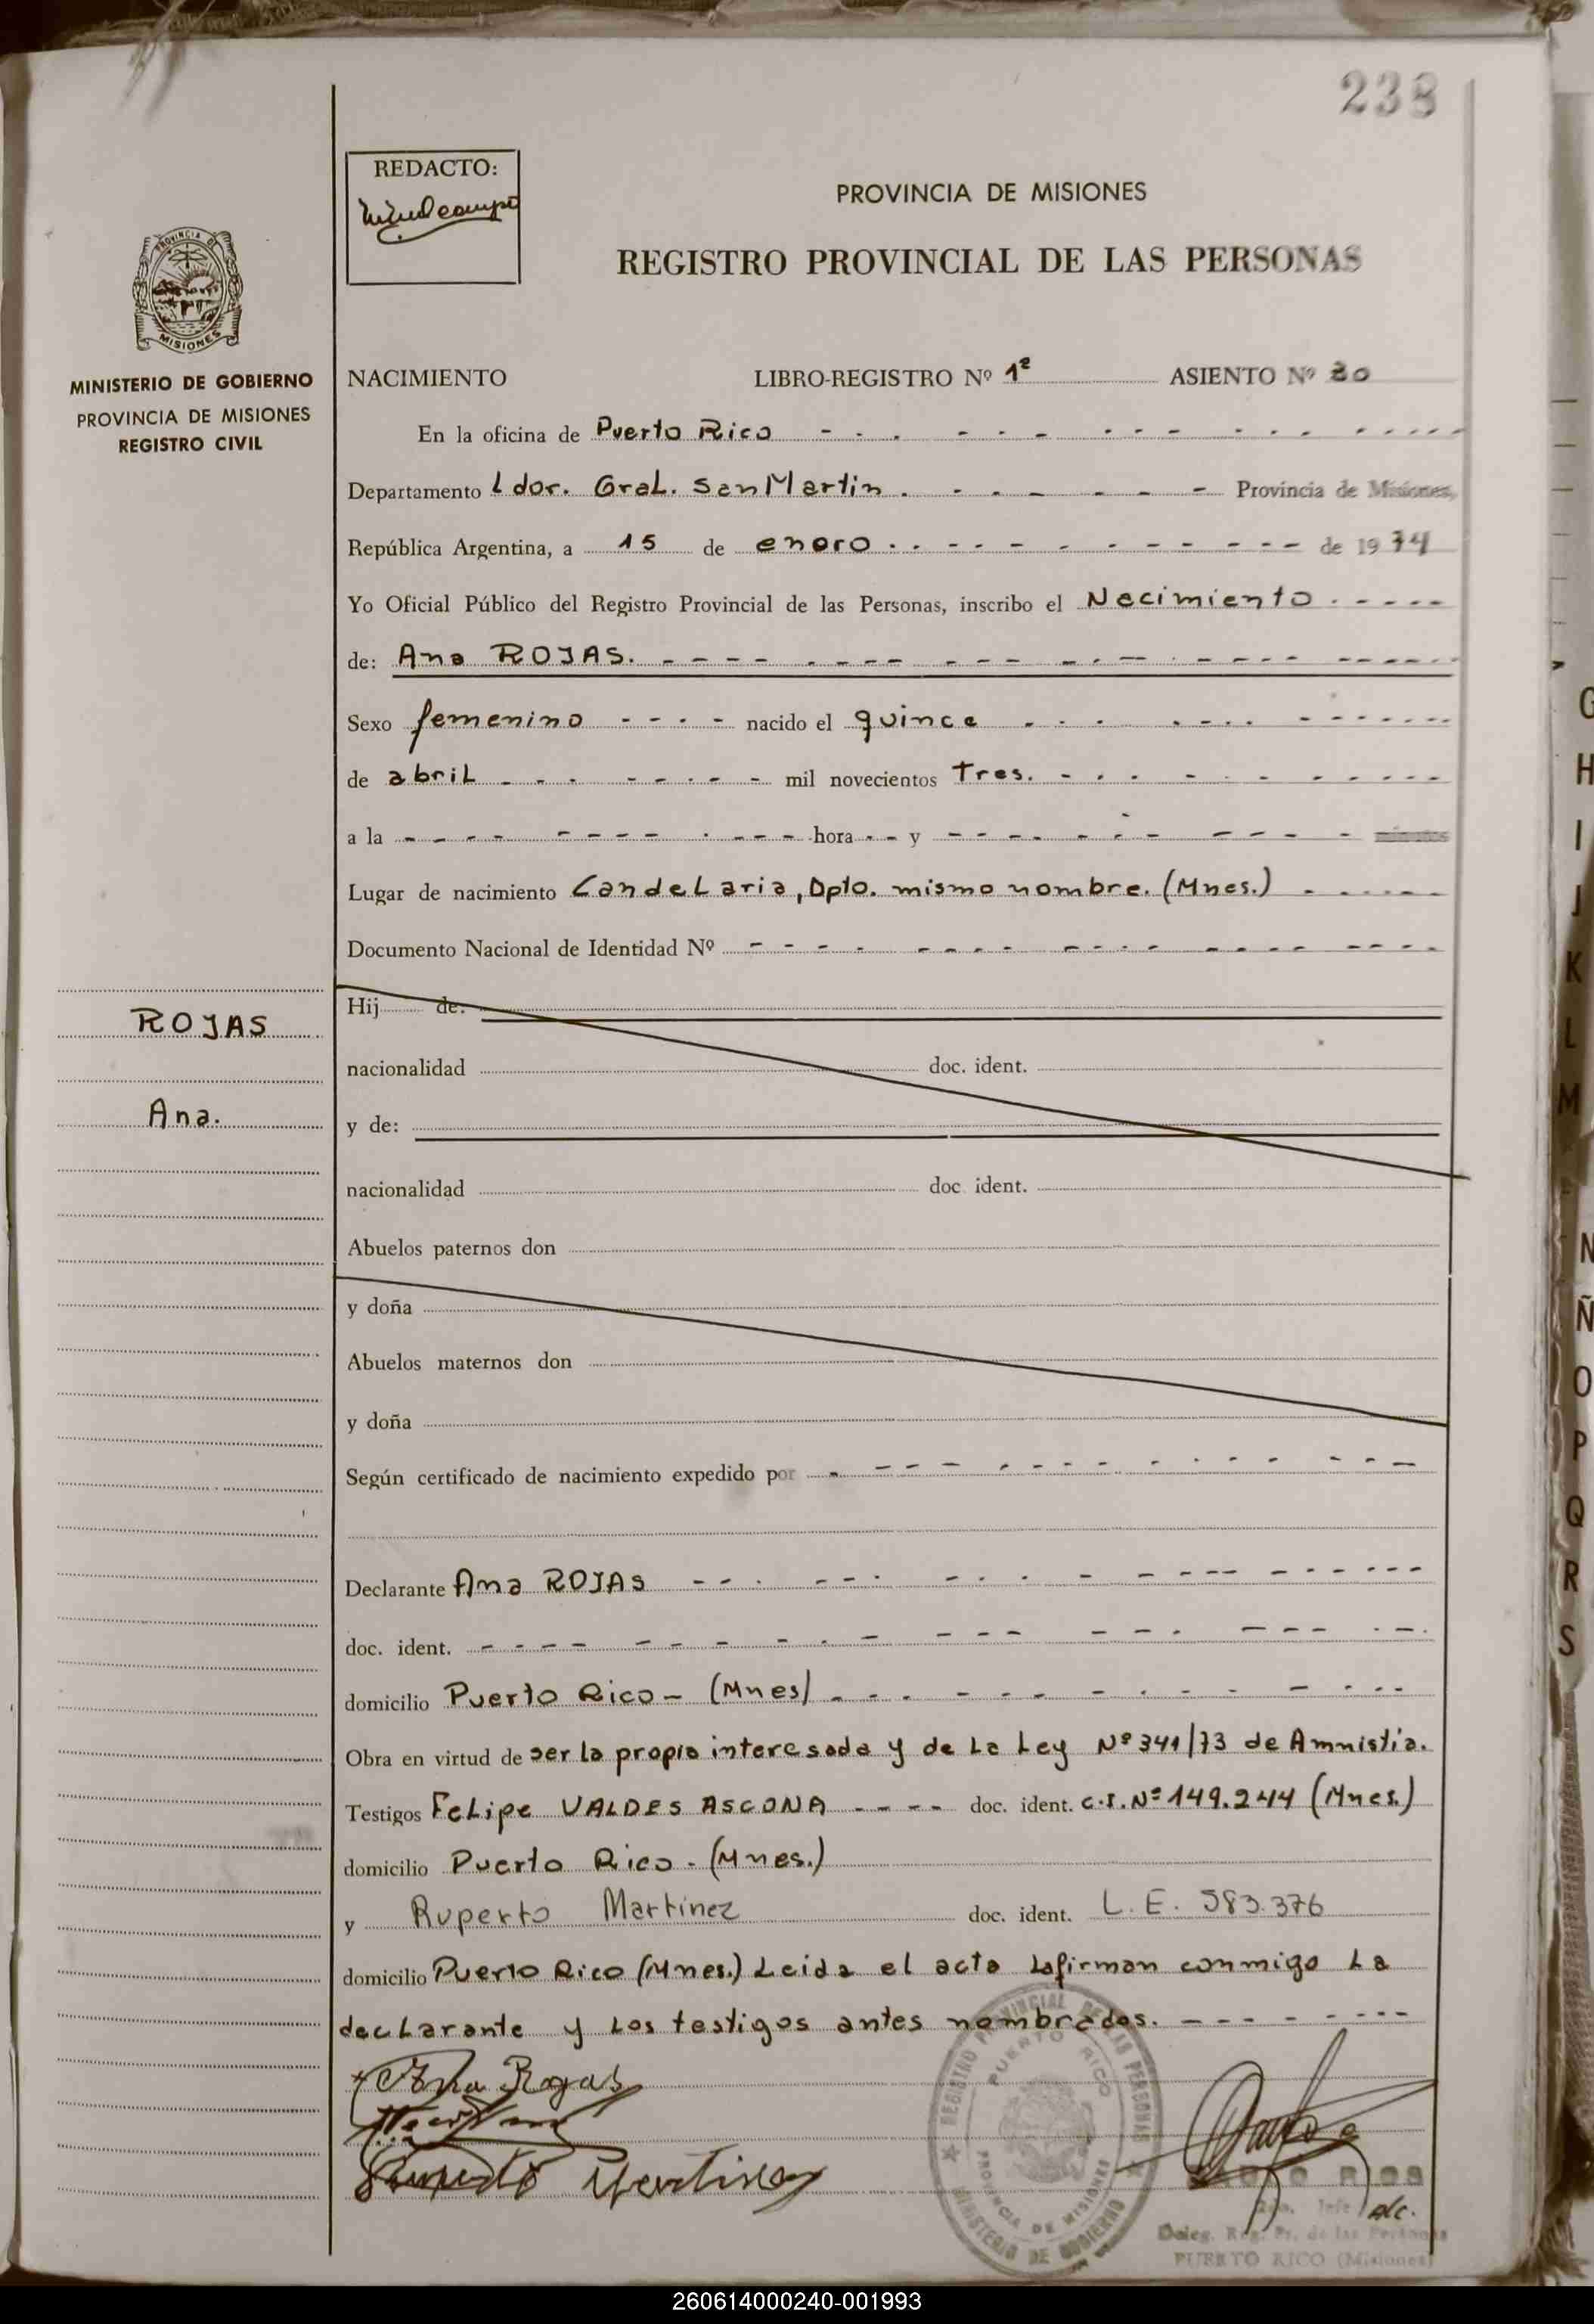 238
REDACTO:
PROVINCIA DE MISIONES
REGISTRO PROVINCIAL DE LAS PERSONAS
PROVINCIA DE
MISIONES
MINISTERIO DE GOBIERNO
PROVINCIA DE MISIONES
REGISTRO CIVIL
NACIMIENTO LIBRO-REGISTRO Nº 1º ASIENTO Nº
En la oficina de Puerto Rico
Departamento Ldor. Gral. San Martin. Provincia de Misiones,
República Argentina, a 15 de enero de 1974
Yo Oficial Público del Registro Provincial de las Personas, inscribo el Nacimiento
de: Ana ROJAS.
Sexo femenino nacido el quince
de abril mil novecientos tres.
a la hora y minutos
Lugar de nacimiento Candelaria, Dpto. mismo nombre. (Mnes.)
Documento Nacional de Identidad Nº
Hij de:
ROJAS
nacionalidad doc. ident.
Ana.
y de:
nacionalidad doc. ident.
Abuelos paternos don
y doña
Abuelos maternos don
y doña
Según certificado de nacimiento expedido por
Declarante Ana ROJAS
doc. ident.
domicilio Puerto Rico - (Mnes)
Obra en virtud de ser la propia interesada y de la Ley Nº 341/73 de Amnistia.
Testigos Felipe VALDES ASCONA doc. ident. C.I. Nº 149.244 (Mnes.)
domicilio Puerto Rico - (Mnes.)
y Ruperto Martinez doc. ident. L.E. 583.376
domicilio Puerto Rico (Mnes.) Leida el acta la firman conmigo la
declarante y los testigos antes nombrados.
Ana Rojas
Ruperto Martinez
REGISTRO PROVINCIAL DE LAS PERSONAS
PUERTO RICO
PROVINCIA DE MISIONES
MINISTERIO DE GOBIERNO
Jefe a/c.
Deleg. Reg. Pr. de las Personas
PUERTO RICO (Misiones)
G
H
I
J
K
L
M
N
Ñ
O
P
Q
R
S
260614000240-001993